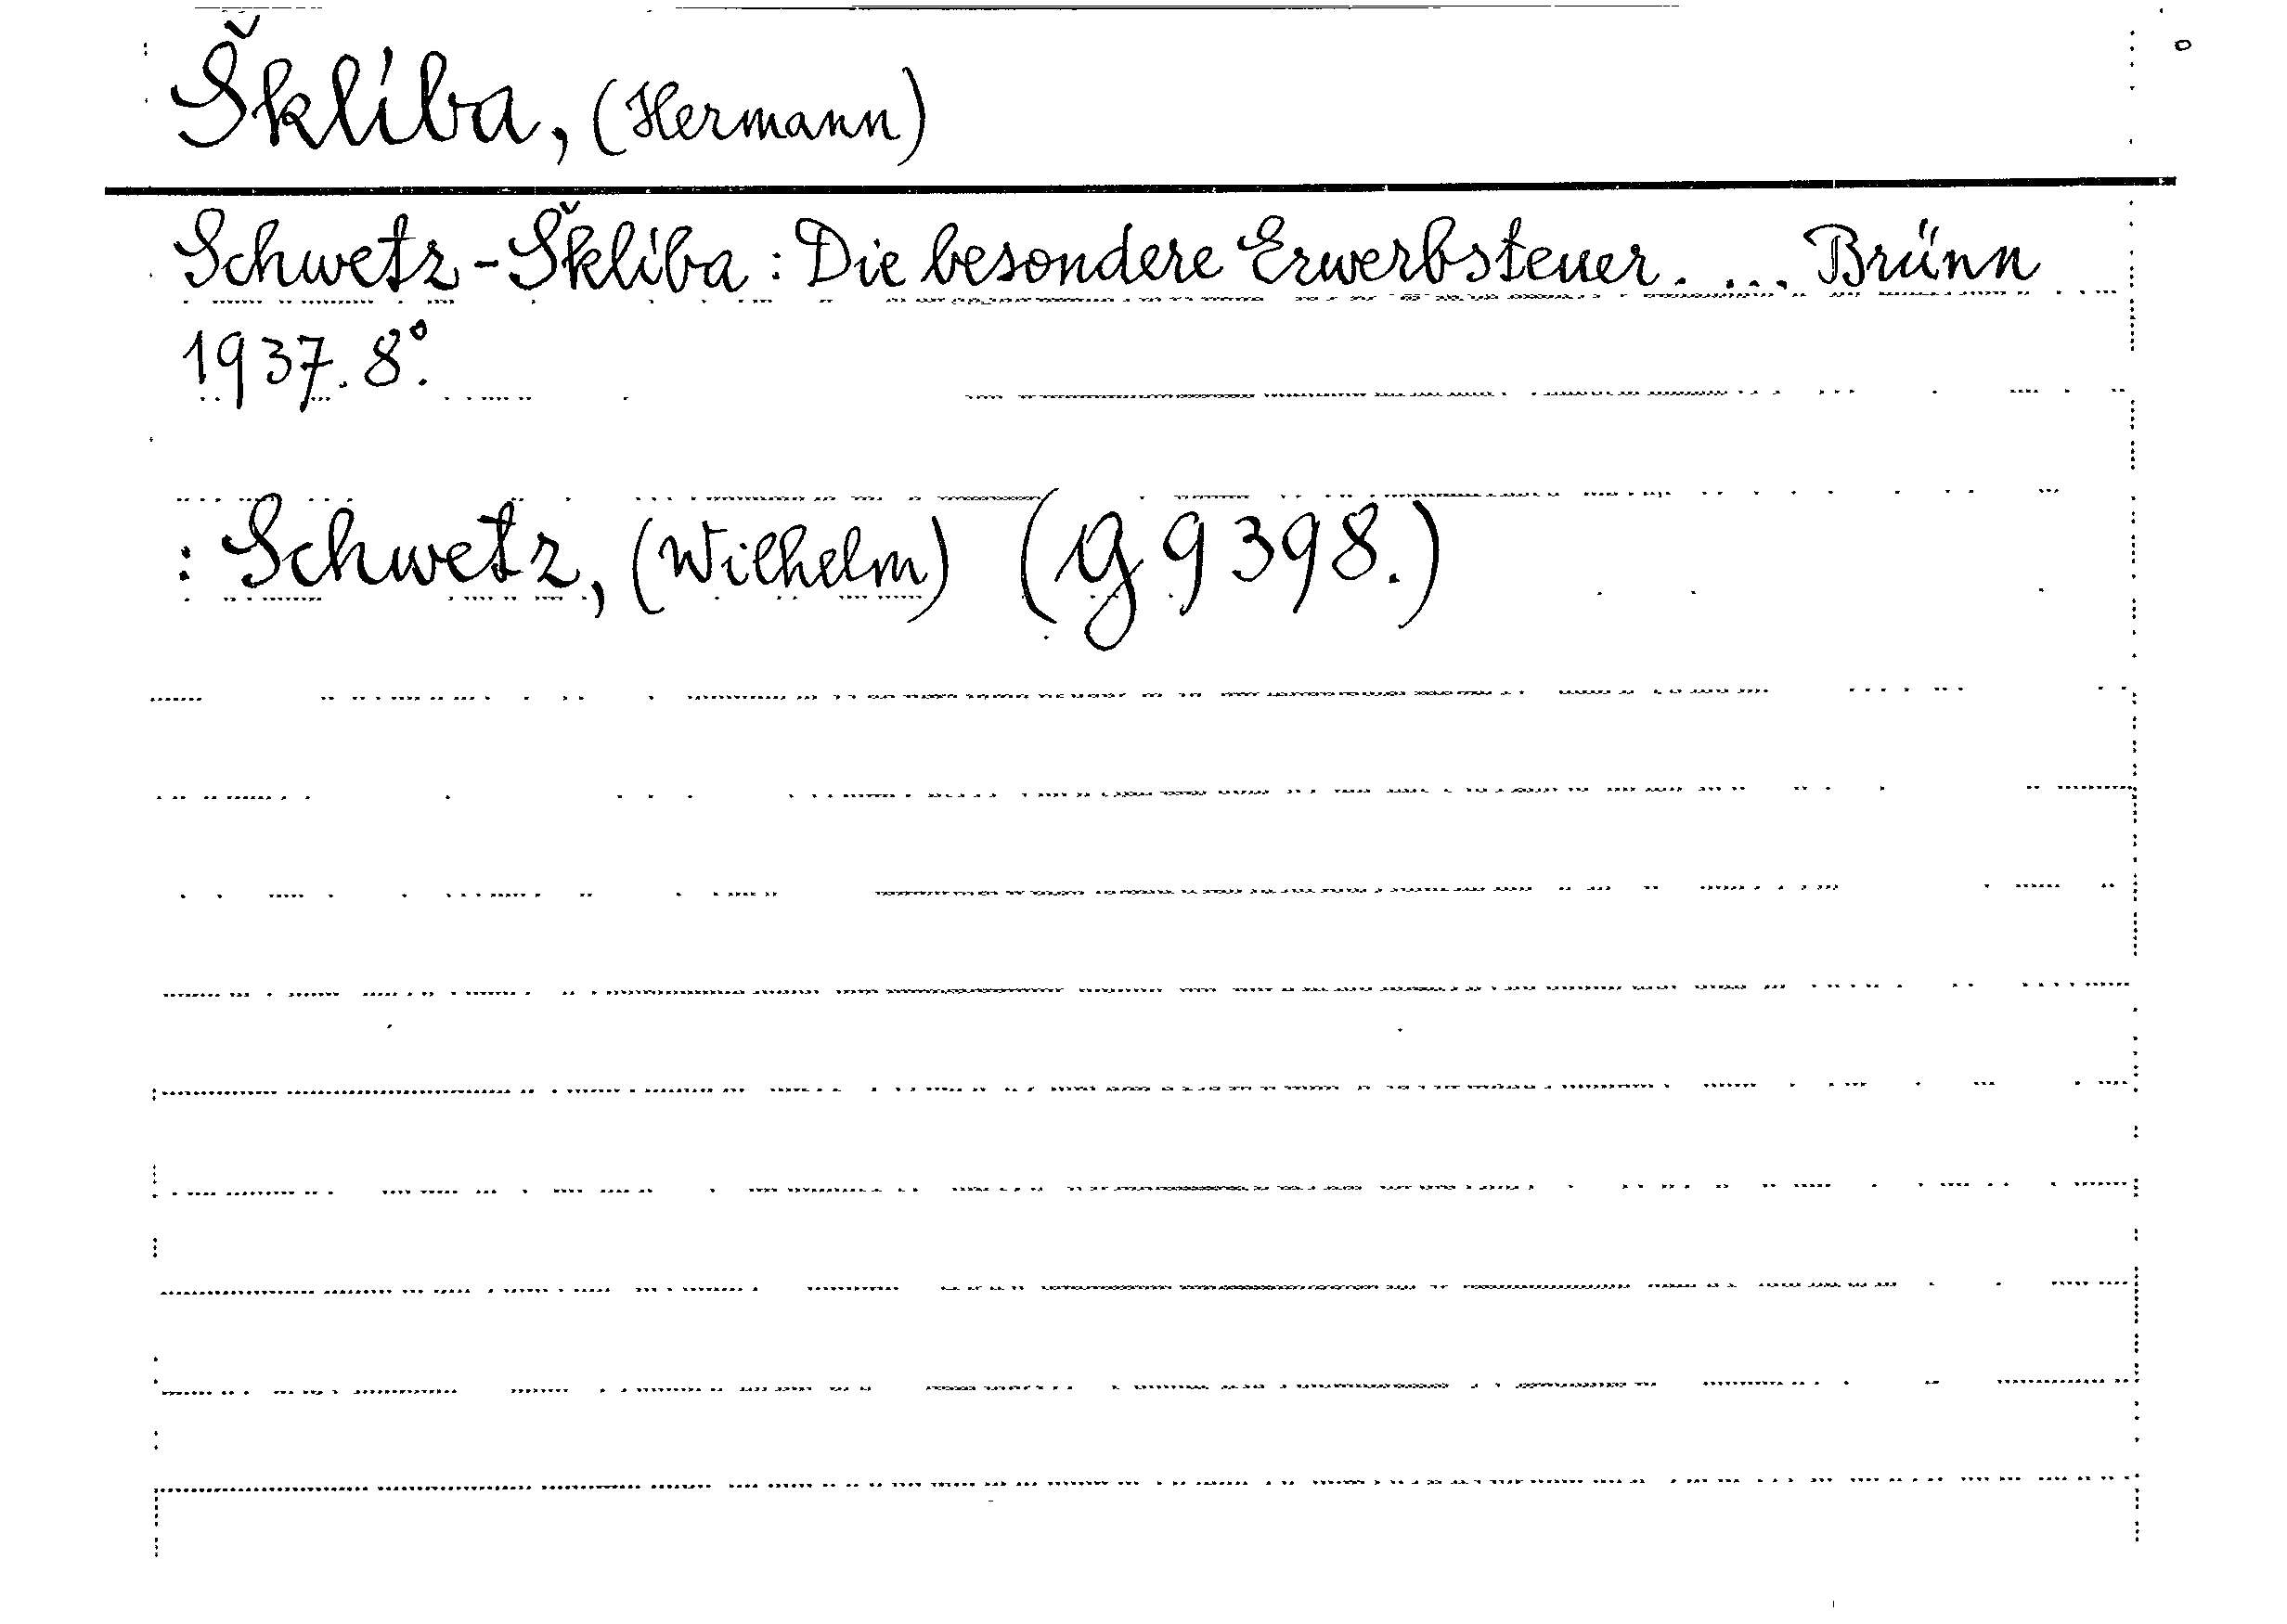 Šklíba, (Hermann)
Schwetz-Šklíba: Die besondere Erwerbsteuer. ... Brünn
1937. 8°.
: Schwetz, (Wilhelm) (g 9398.)